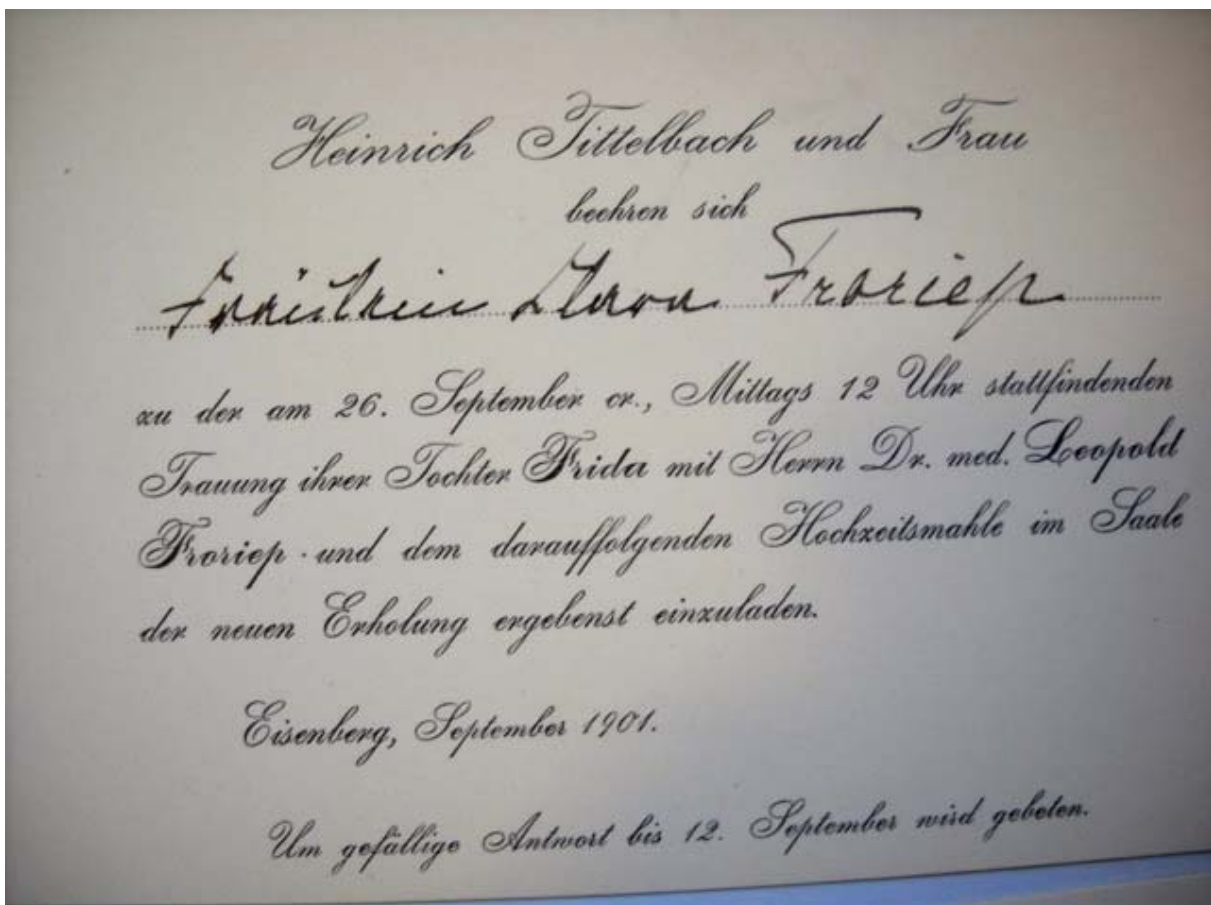 Heinrich Tittelbach und Frau
beehren sich
Fräulein Clara Froriep
zu der am 26. September cr., Mittags 12 Uhr stattfindenden
Trauung ihrer Tochter Frida mit Herrn Dr. med. Leopold
Froriep und dem darauffolgenden Hochzeitsmahle im Saale
der neuen Erholung ergebenst einzuladen.
Eisenberg, September 1901.
Um gefällige Antwort bis 12. September wird gebeten.